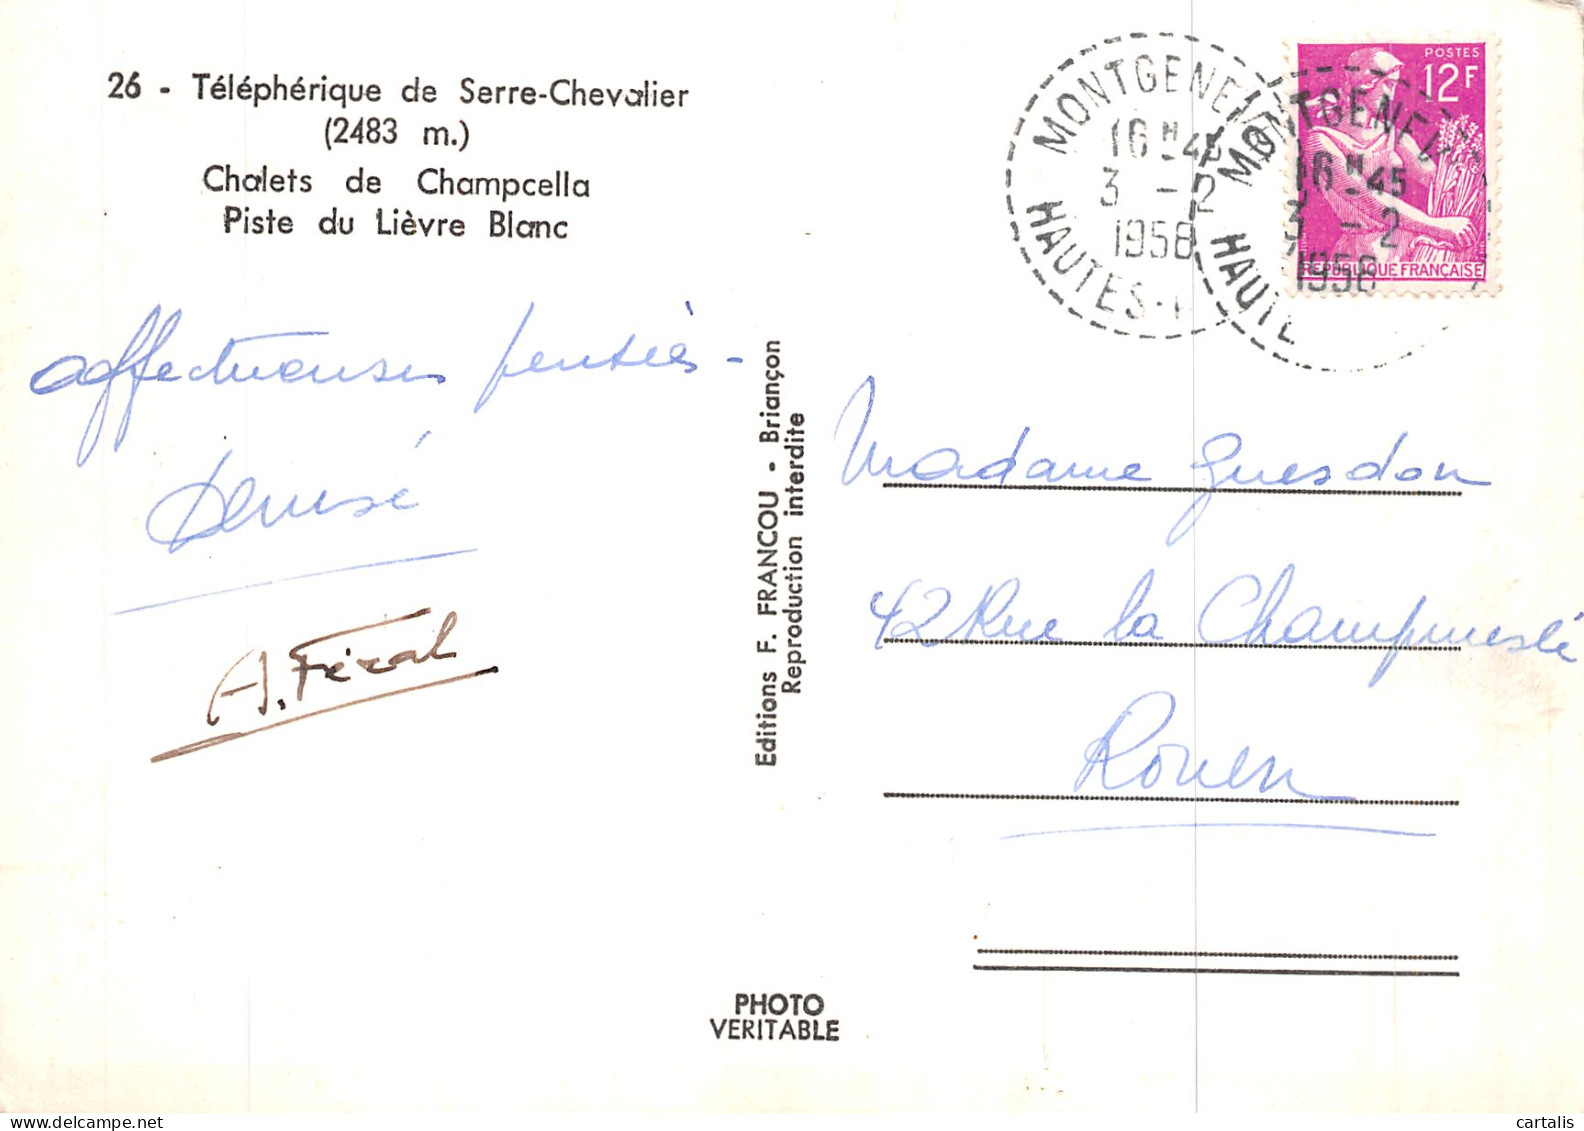 26 - Téléphérique de Serre-Chevalier
(2483 m.)
Chalets de Champcella
Piste du Lièvre Blanc
affectueuses pensées -
Denise
A. Féral
Editions F. FRANCOU - Briançon
Reproduction interdite
PHOTO
VERITABLE
MONTGENEV
16 H -45
3 - 2
1958
HAUTES-
MONTGENEV
16 H -45
3 - 2
1958
HAUTE
POSTES
12F
REPUBLIQUE FRANÇAISE
Madame Guesdon
42 Rue la Champmeslé
Rouen
cartalis